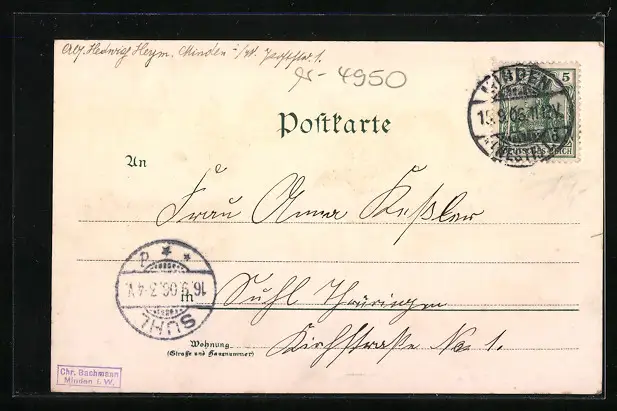 Hedwig Heym. Minden i/W.
4950
MINDEN
5
15.9.06.11-12V.
(WESTF.)
REICH
Postkarte
An
Frau Anna Keßler
in Suhl Thüringen
SUHL
16.9.06.3-4V.
Wohnung
(Straße und Hausnummer)
Kirchstraße No 1.
Chr. Bachmann
Minden i. W.